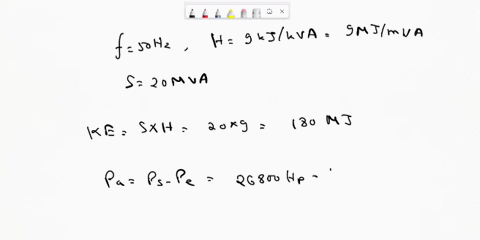 f=50Hz, H= 9kJ/kVA = 9MJ/mVA
S=20MVA
KE= SXH= 20x9= 180 MJ
Pa= Ps-Pe = 26800Hp -